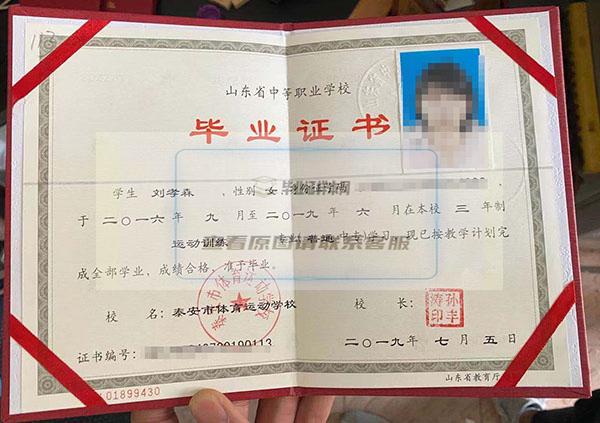 山东省中等职业学校
毕业证书
学生 刘孝森 ,性别 女
于 二〇一六 年 九 月至 二〇一九 年 六 月在本校 三 年制
运动训练 专业( 普通 中专)学习,现已按教学计划完
成全部学业,成绩合格,准予毕业。
查看原图请联系客服
校 名: 泰安市体育运动学校 校 长:
泰安市体育运动学校
证书编号: 190113
二〇一九 年 七 月 五 日
01899430
山东省教育厅